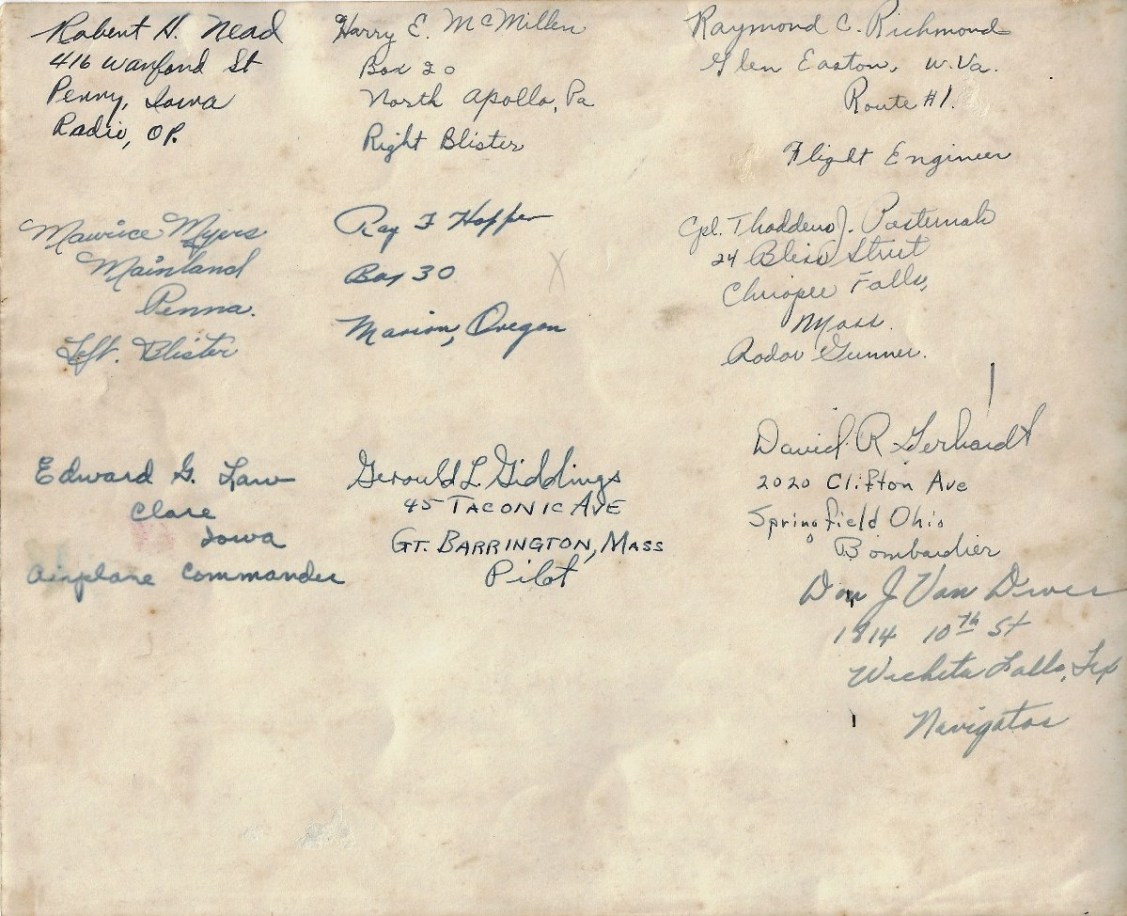 Robert H. Nead
416 Wanford St
Perry, Iowa
Radio, OP.
Harry E. McMillen
Box 20
North Apollo, Pa
Right Blister
Raymond C. Richmond
Glen Easton, W.Va.
Route #1.
Flight Engineer
Maurice Myers
Mainland
Penna.
Left. Blister
Ray F Hopper
Box 30
Marion, Oregon
Cpl. Thaddeus J. Pasternak
24 Bliss Street
Chicopee Falls,
Mass.
Radar Gunner.
Edward G. Law
Clare
Iowa
Airplane Commander
Gerould L Giddings
45 TACONIC AVE
GT. BARRINGTON, MASS
Pilot
David R. Gerhardt
2020 Clifton Ave
Springfield Ohio
Bombardier
Don J Van Diver
1814 10th St
Wichita Falls, Tex
Navigator